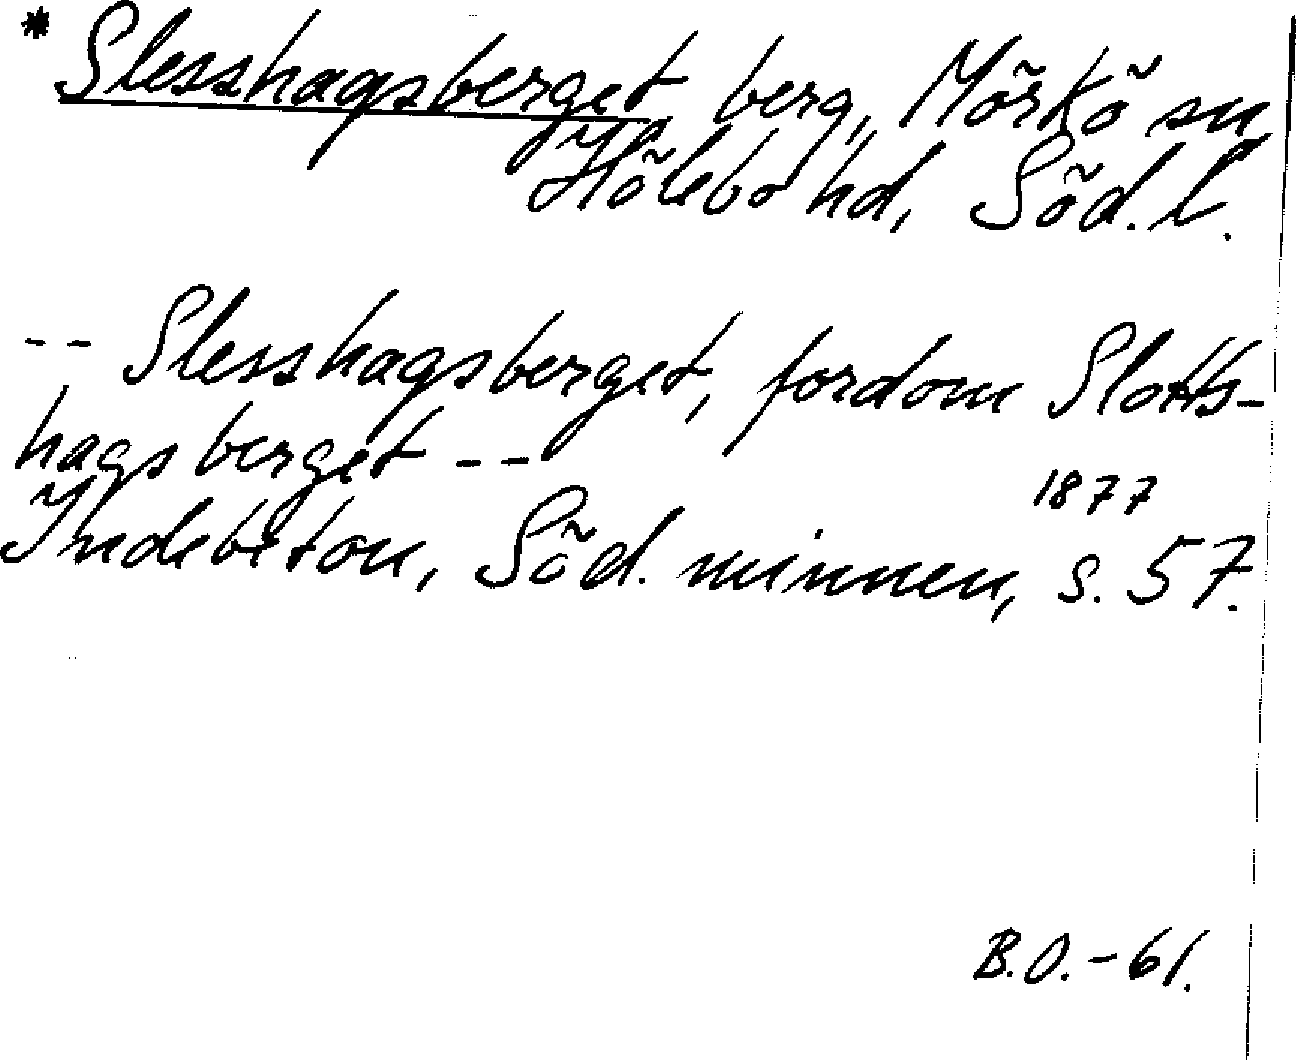 * Slesshagsberget berg, Mörkö sn,
Hölebo hd, Söd. l.
-- Slesshagsberget, fordom Slotts-
hagsberget --
1877
Indebetou, Söd. minnen, s. 57.
B.O.-61.